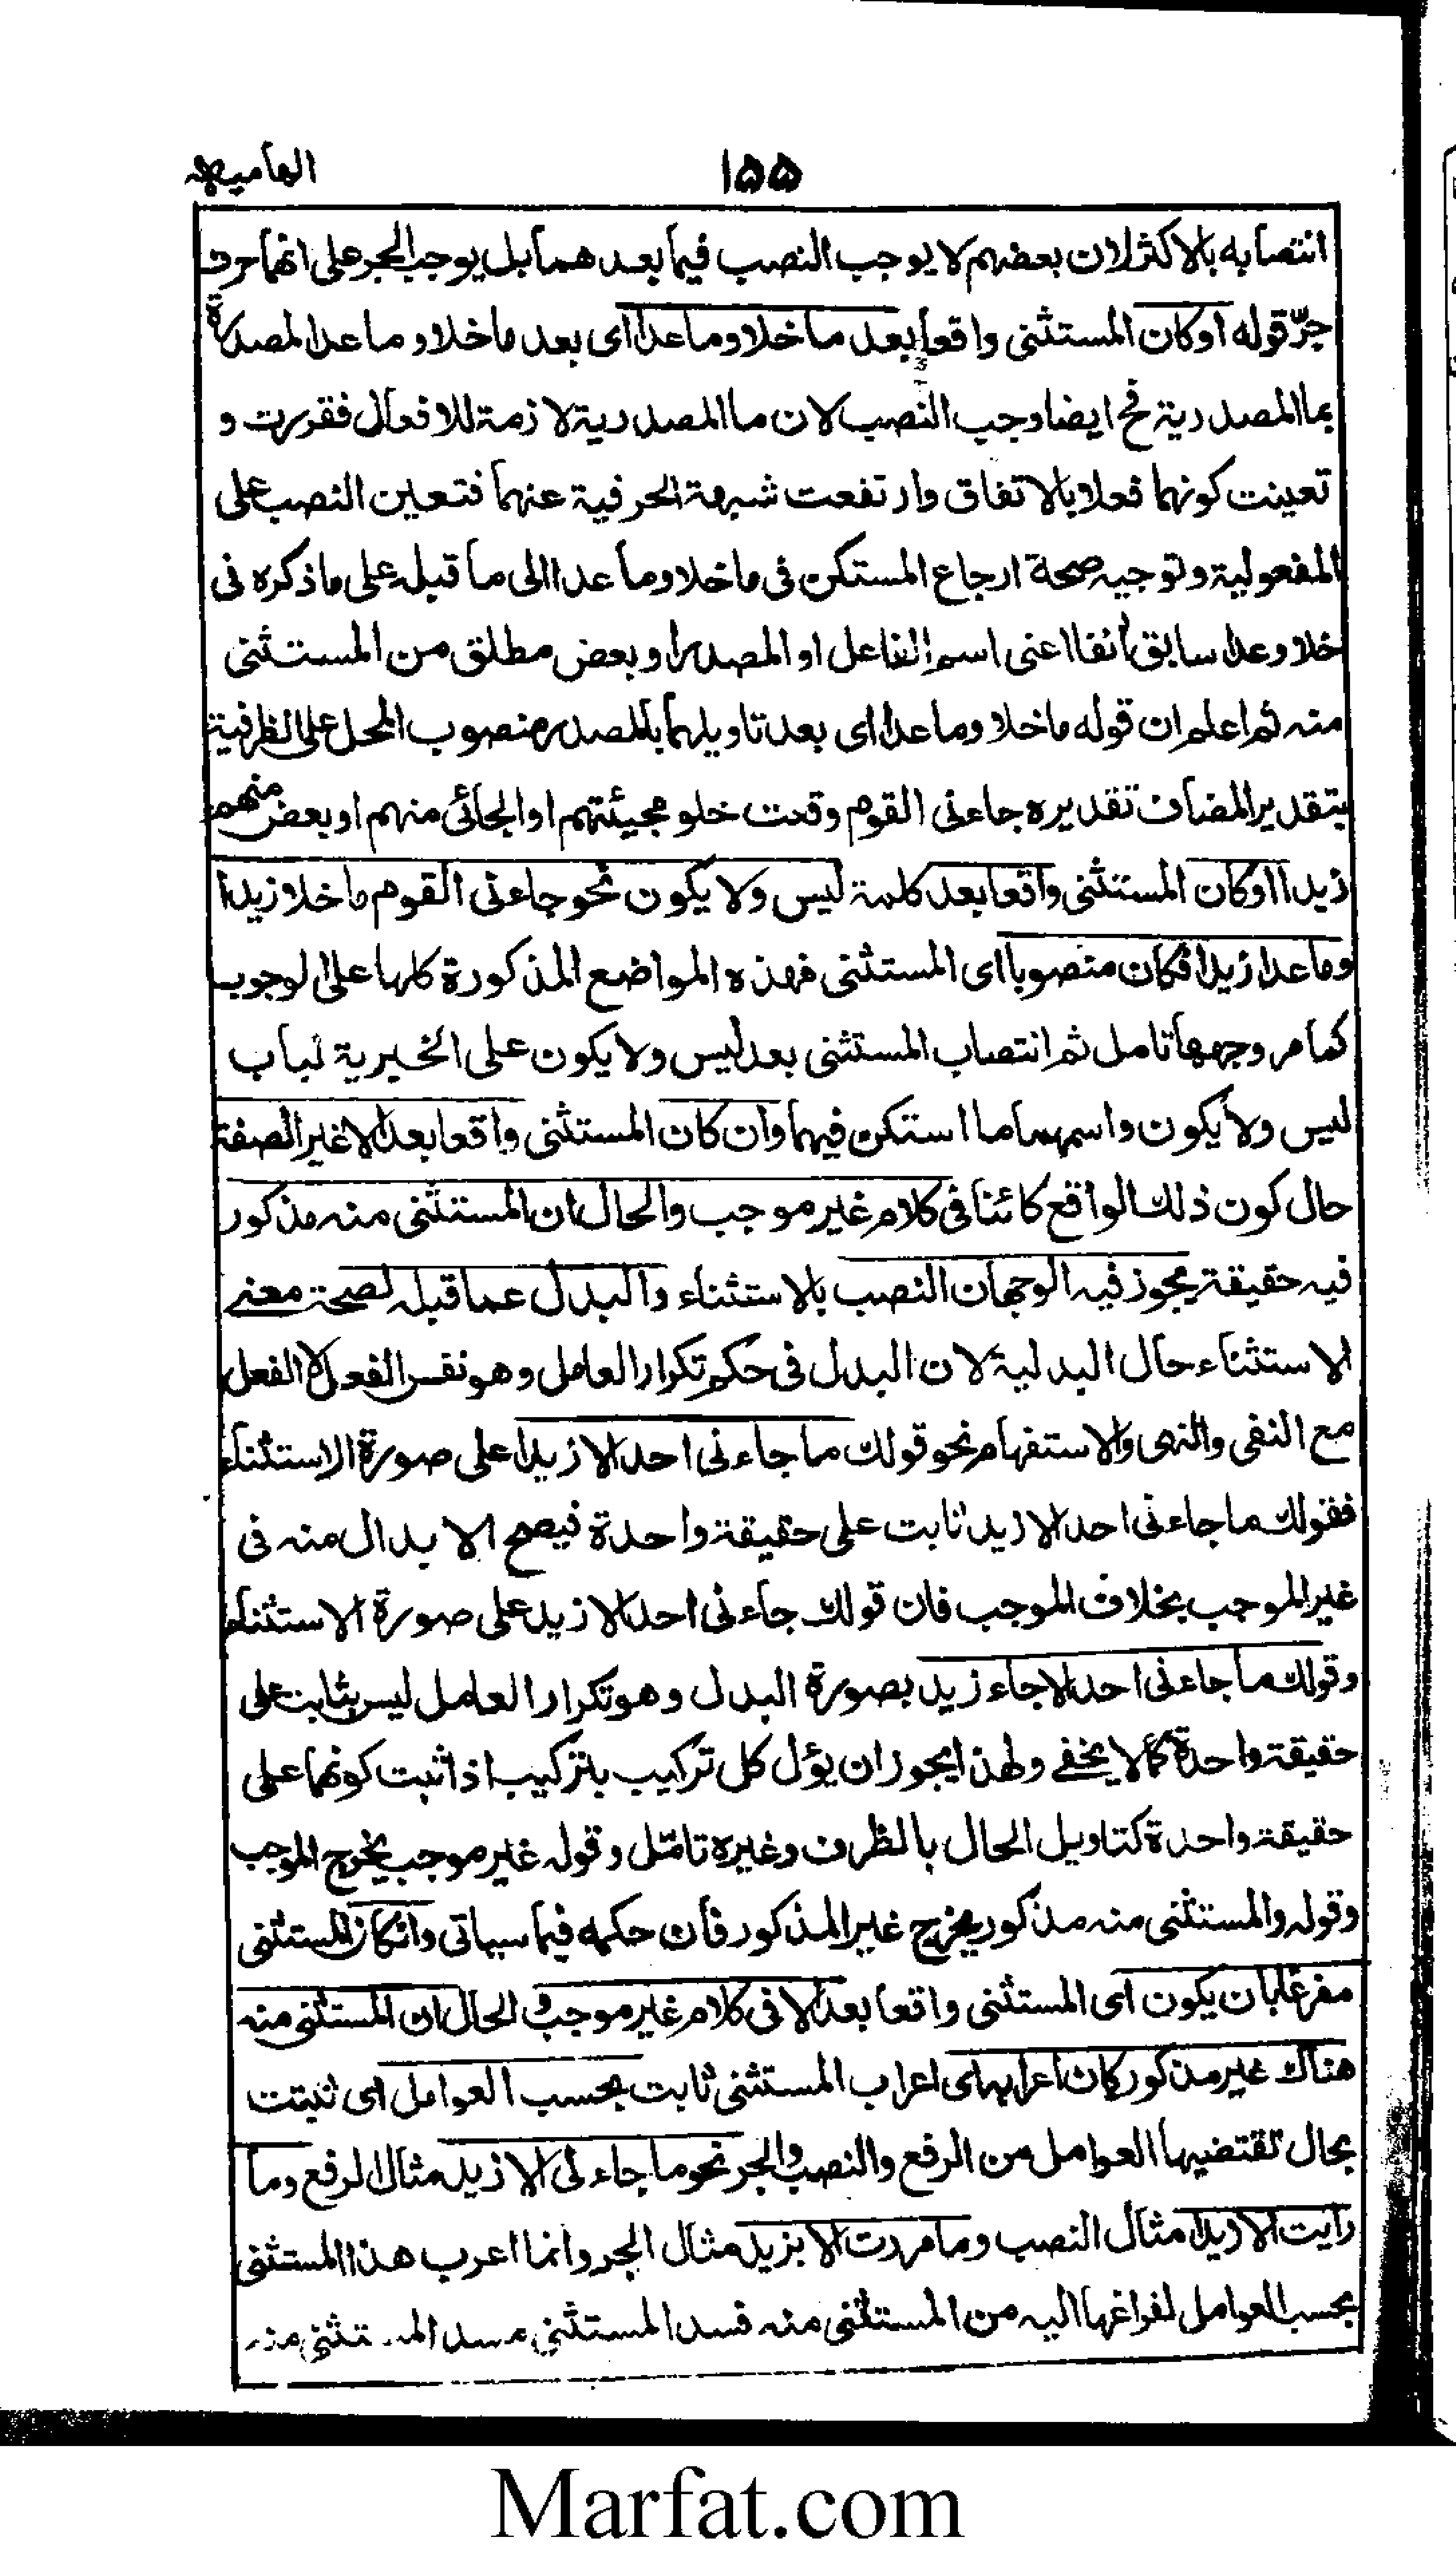 ۱۵۵
انتصابه بالاكثر لان بعضهم لا يوجب النصب فيما بعدهما بل يوجب الجر على انهما حرف
جرّ قوله او كان المستثنى واقعا بعد ما خلا وما عدا اى بعد ما خلا و ما عدا المصدرة
بما المصدرية فح ايضا وجب النصب لان ما المصدرية لازمة للافعال فقررت و
تعينت كونهما فعلا بالاتفاق وارتفعت شبهة الحرفية عنهما فتعين النصب على
المفعولية وتوجيه صحة ارجاع المستكن فى ما خلا وما عدا الى ما قبله على ما ذكره فى
خلا وعدا سابق انفا اعنى اسم الفاعل او المصدر او بعض مطلق من المستثنى
منه ثم اعلم ان قوله ما خلا وما عدا اى بعد تاويلهما بالمصدر منصوب المحل على الظرفية
بتقدير المضاف تقديره جاءنى القوم وقت خلو مجيئتهم او الجائى منهم او بعض منهم
زيدا او كان المستثنى واقعا بعد كلمة ليس ولا يكون نحو جاءنى القوم ما خلا زيدا
وما عدا زيدا فكان منصوبا اى المستثنى فهذه المواضع المذكورة كلها على الوجوب
كما مر وجهها تامل ثم انتصاب المستثنى بعد ليس ولا يكون على الخبرية لباب
ليس ولا يكون واسمهما ما استكن فيهما وان كان المستثنى واقعا بعد الا غير الصفة
حال كون ذلك الواقع كائنا فى كلام غير موجب والحال ان المستثنى منه مذكور
فيه حقيقة يجوز فيه الوجهان النصب بالاستثناء والبدل عما قبله لصحة معنے
الاستثناء حال البدلية لان البدل فى حكم تكرار العامل وهو نفس الفعل لا الفعل
مع النفى والنهى والاستفهام نحو قولك ما جاءنى احد الا زيدا على صورة الاستثناء
فقولك ما جاءنى احد الا زيد ثابت على حقيقة واحدة فيصح الابدال منه فى
غير الموجب بخلاف الموجب فان قولك جاءنى احد الا زيد على صورة الاستثناء
وقولك ما جاءنى احد الا جاء زيد بصورة البدل وهو تكرار العامل ليس بثابت على
حقيقة واحدة كما لا يخفے ولهذا يجوز ان يؤل كل تركيب بتركيب اذا ثبت كونهما على
حقيقة واحدة كتاويل الحال بالظرف وغيره تامّل وقوله غير موجب يخرج الموجب
وقوله والمستثنى منه مذكور يخرج غير المذكور فان حكمه فيما سياتى وانكان المستثنى
مفرغا بان يكون اى المستثنى واقعا بعد الا فى كلام غير موجب و الحال ان المستثنى منه
هناك غير مذكور كان اعرابه اى اعراب المستثنى ثابت بحسب العوامل اى ثبتت
بحال تقتضيها العوامل من الرفع والنصب والجر نحو ما جاءنى الا زيد مثال الرفع وما
رايت الا زيدا مثال النصب وما مررت الا بزيد مثال الجر وانما اعرب هذا المستثنى
بحسب العوامل لفراغها اليه من المستثنى منه فسد المستثنى مسد المستثنى منه
Marfat.com